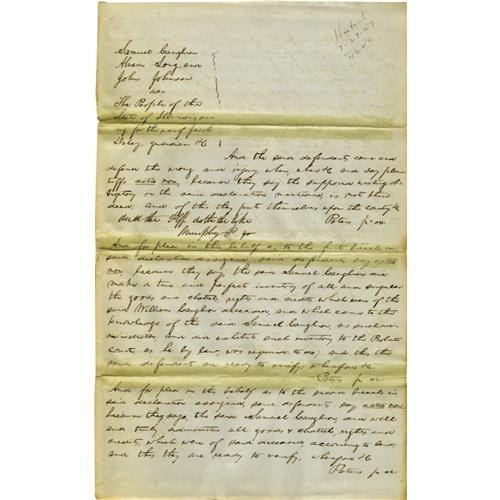 Samuel Caughron
Abram Long, and
John Johnson
ads
The People of the
State of Illinois, suing
for the use of Jacob
guardian &c
And the said defendants come and
defend the wrong and injury, when, where &c and say plain
tiffs actio non, because they say the supposed writing ob
ligatory in the said declaration mentioned, is not their
deed, and of this they put themselves upon the country &c
Peters p. d.
And the Plff doth the like
Murphy P. q.
And for plea in this behalf as to the first breach in
said declaration assigned, said defendants say actio
non, because they say, the said Samuel Caughron did
make a true and perfect inventory of all and singular
the goods and chattels, rights and credits which were of the
said William Caughron deceased, and which came to the
knowledge of the said Samuel Caughron, as such ad
ministrator, and did exhibit such inventory to the Probate
court, as he by law, was required to do, and this the
said defendants are ready to verify, wherefore &c
Peters p. d.
And for plea in this behalf as to the second breach in
said declaration assigned, said defendants say actio non
because they say, the said Samuel Caughron did well
and truly administer all goods & chattels rights and
credits, which were of said deceased according to law,
and this they are ready to verify, wherefore &c
Peters p. d.